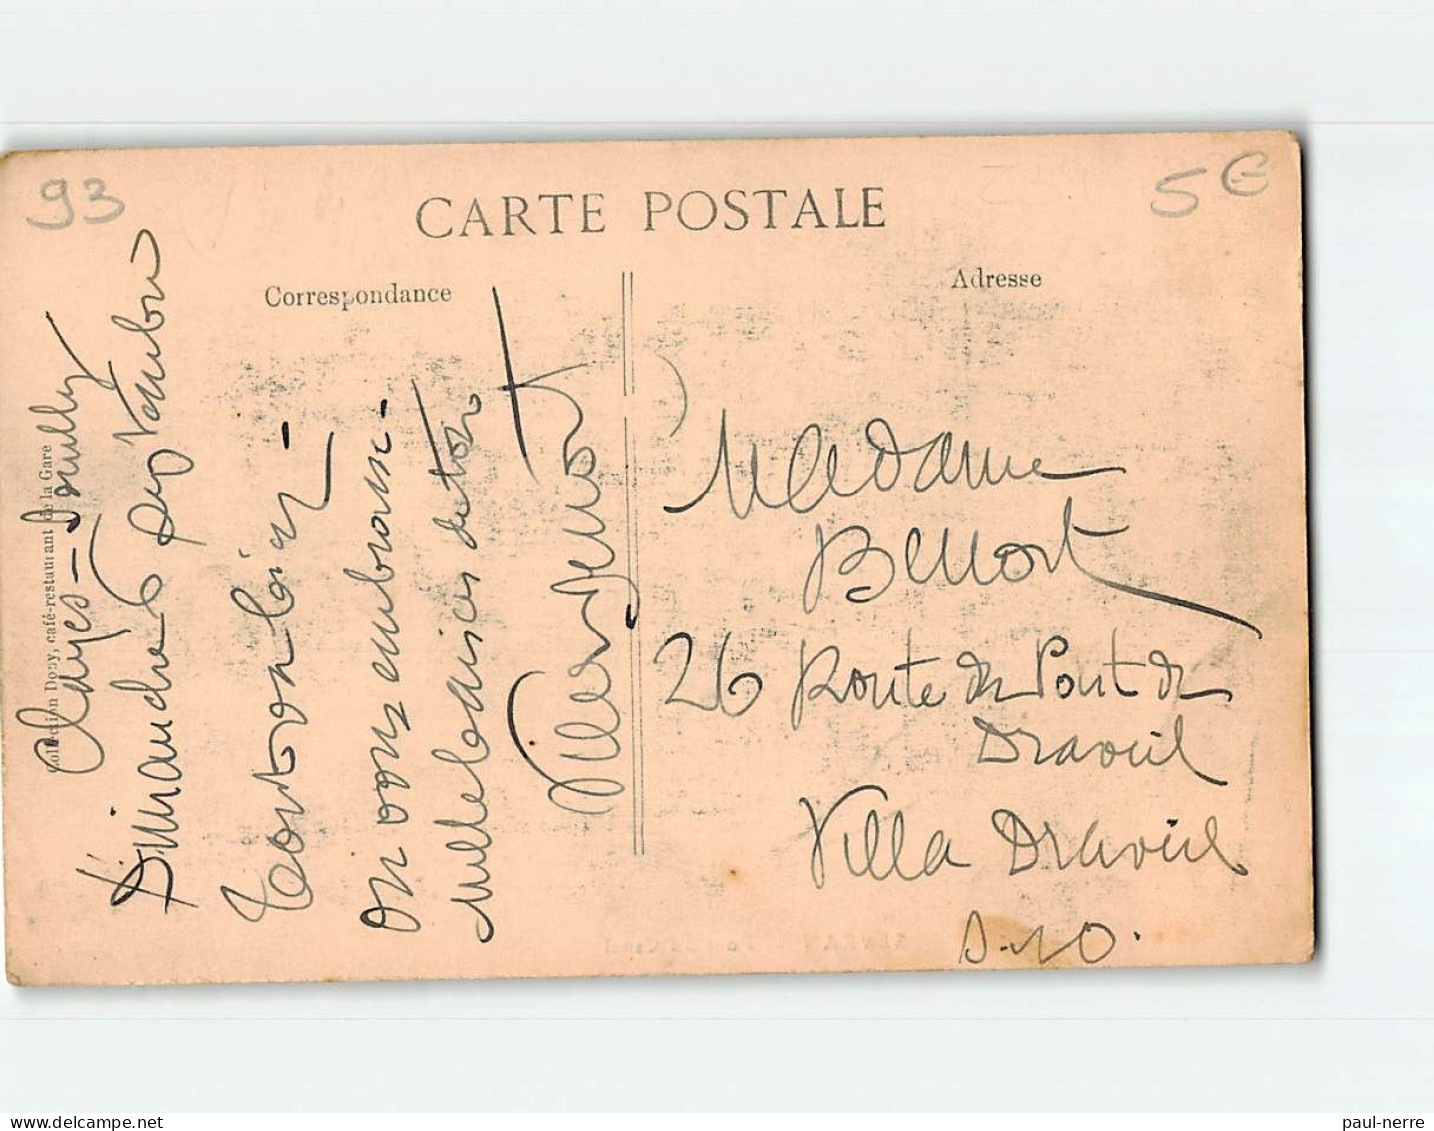 93
5€
CARTE POSTALE
Correspondance
Adresse
Collection Dony, café-restaurant de la Gare
Clayes – Souilly
Dimanche 6 Septembre
Tout va bien –
On vous embrasse –
mille baisers de tous
Madame
Benoit
26 Route du Pont de
Draveil
Villa Draveil
S.-&-O.
SEVRAN
paul-nerre